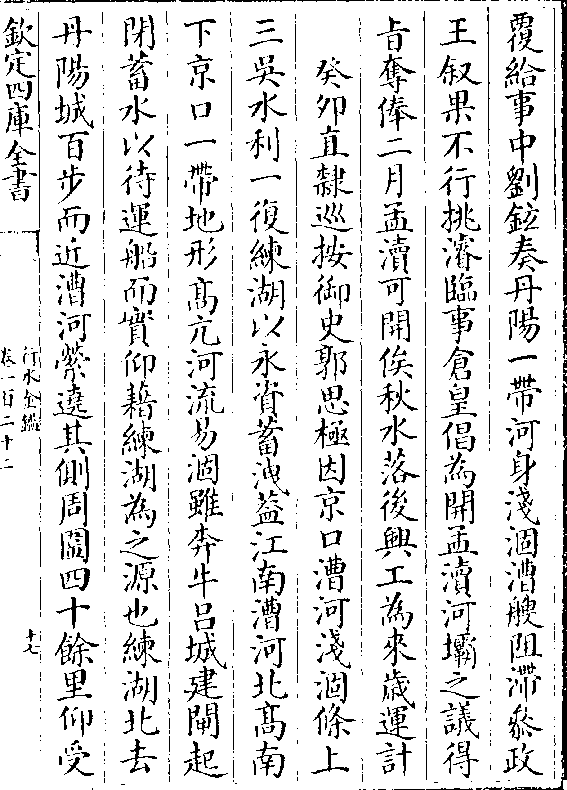 覆給事中劉鉉奏丹陽一帶河身淺涸漕艘阻滯叅政
王叙果不行挑濬臨事倉皇倡為開孟瀆河壩之議得
㫖奪俸二月孟瀆可開俟秋水落後興工為來歳運計
癸卯直隸巡按御史郭思極因京口漕河淺涸條上
三吳水利一復練湖以永資蓄洩葢江南漕河北髙南
下京口一帶地形髙亢河流易涸雖奔牛吕城建閘起
閉蓄水以待運船而實仰藉練湖為之源也練湖北去
丹陽城百步而近漕河縈遶其側周圍四十餘里仰受
欽定四庫全書
行水金鑑
卷一百二十二
十七